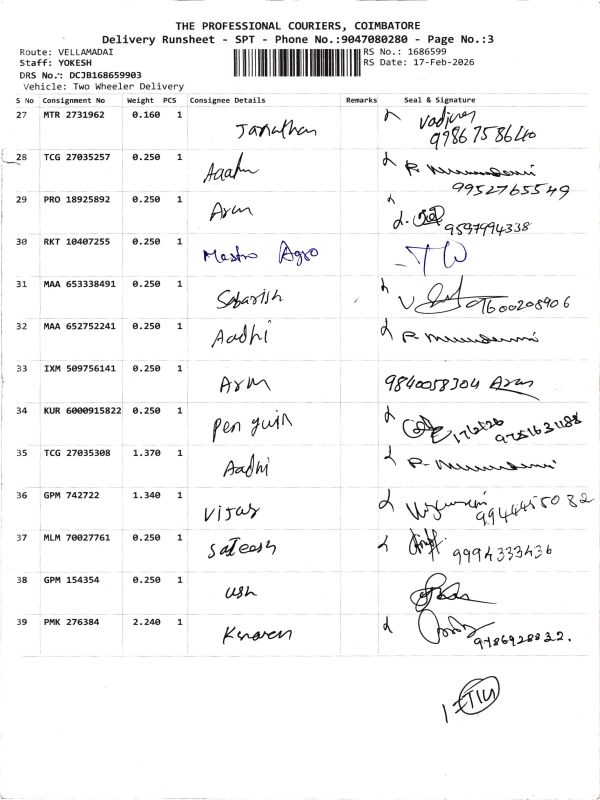 THE PROFESSIONAL COURIERS, COIMBATORE
Delivery Runsheet - SPT - Phone No.:9047080280 - Page No.:3
Route: VELLAMADAI
RS No.: 1686599
Staff: YOKESH
RS Date: 17-Feb-2026
DRS No.: DCJB168659903
Vehicle: Two Wheeler Delivery
S No Consignment No Weight PCS Consignee Details Remarks Seal & Signature
27 MTR 2731962 0.160 1 Janathan
9786758640
28 TCG 27035257 0.250 1
9952765549
29 PRO 18925892 0.250 1 Arun
9597994338
30 RKT 10407255 0.250 1 Mestro Agro TW
31 MAA 653338491 0.250 1 Sabarish 9600208906
32 MAA 652752241 0.250 1 Aadhi
33 IXM 509756141 0.250 1 Arun 9840058304 Arun
34 KUR 6000915822 0.250 1 Penguin
35 TCG 27035308 1.370 1 Aadhi
36 GPM 742722 1.340 1 Vijay 9944455082
37 MLM 70027761 0.250 1 Sateesh 9994333436
38 GPM 154354 0.250 1 Ush
39 PMK 276384 2.240 1 9786928832.